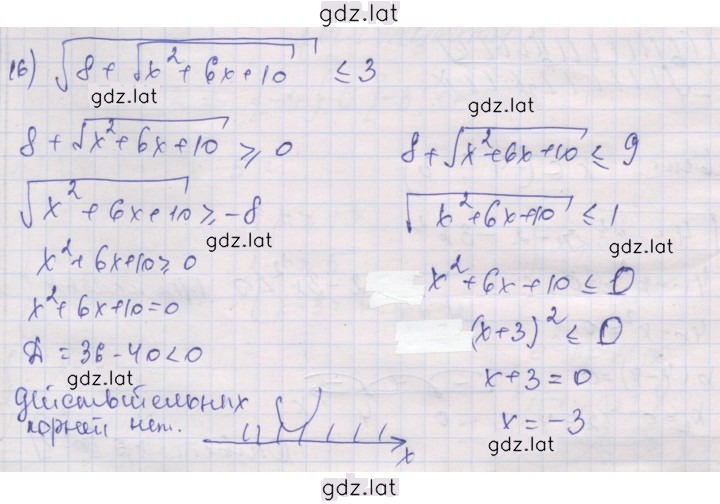 gdz.lat
16) √(8 + √(x² + 6x + 10)) ≤ 3
gdz.lat
8 + √(x² + 6x + 10) ≥ 0
√(x² + 6x + 10) ≥ -8
gdz.lat
x² + 6x + 10 ≥ 0
x² + 6x + 10 = 0
D = 36 - 40 < 0
gdz.lat
действительных
корней нет.
x
gdz.lat
8 + √(x² + 6x + 10) ≤ 9
√(x² + 6x + 10) ≤ 1
gdz.lat
x² + 6x + 10 ≤ 0
(x + 3)² ≤ 0
x + 3 = 0
x = -3
gdz.lat
gdz.lat